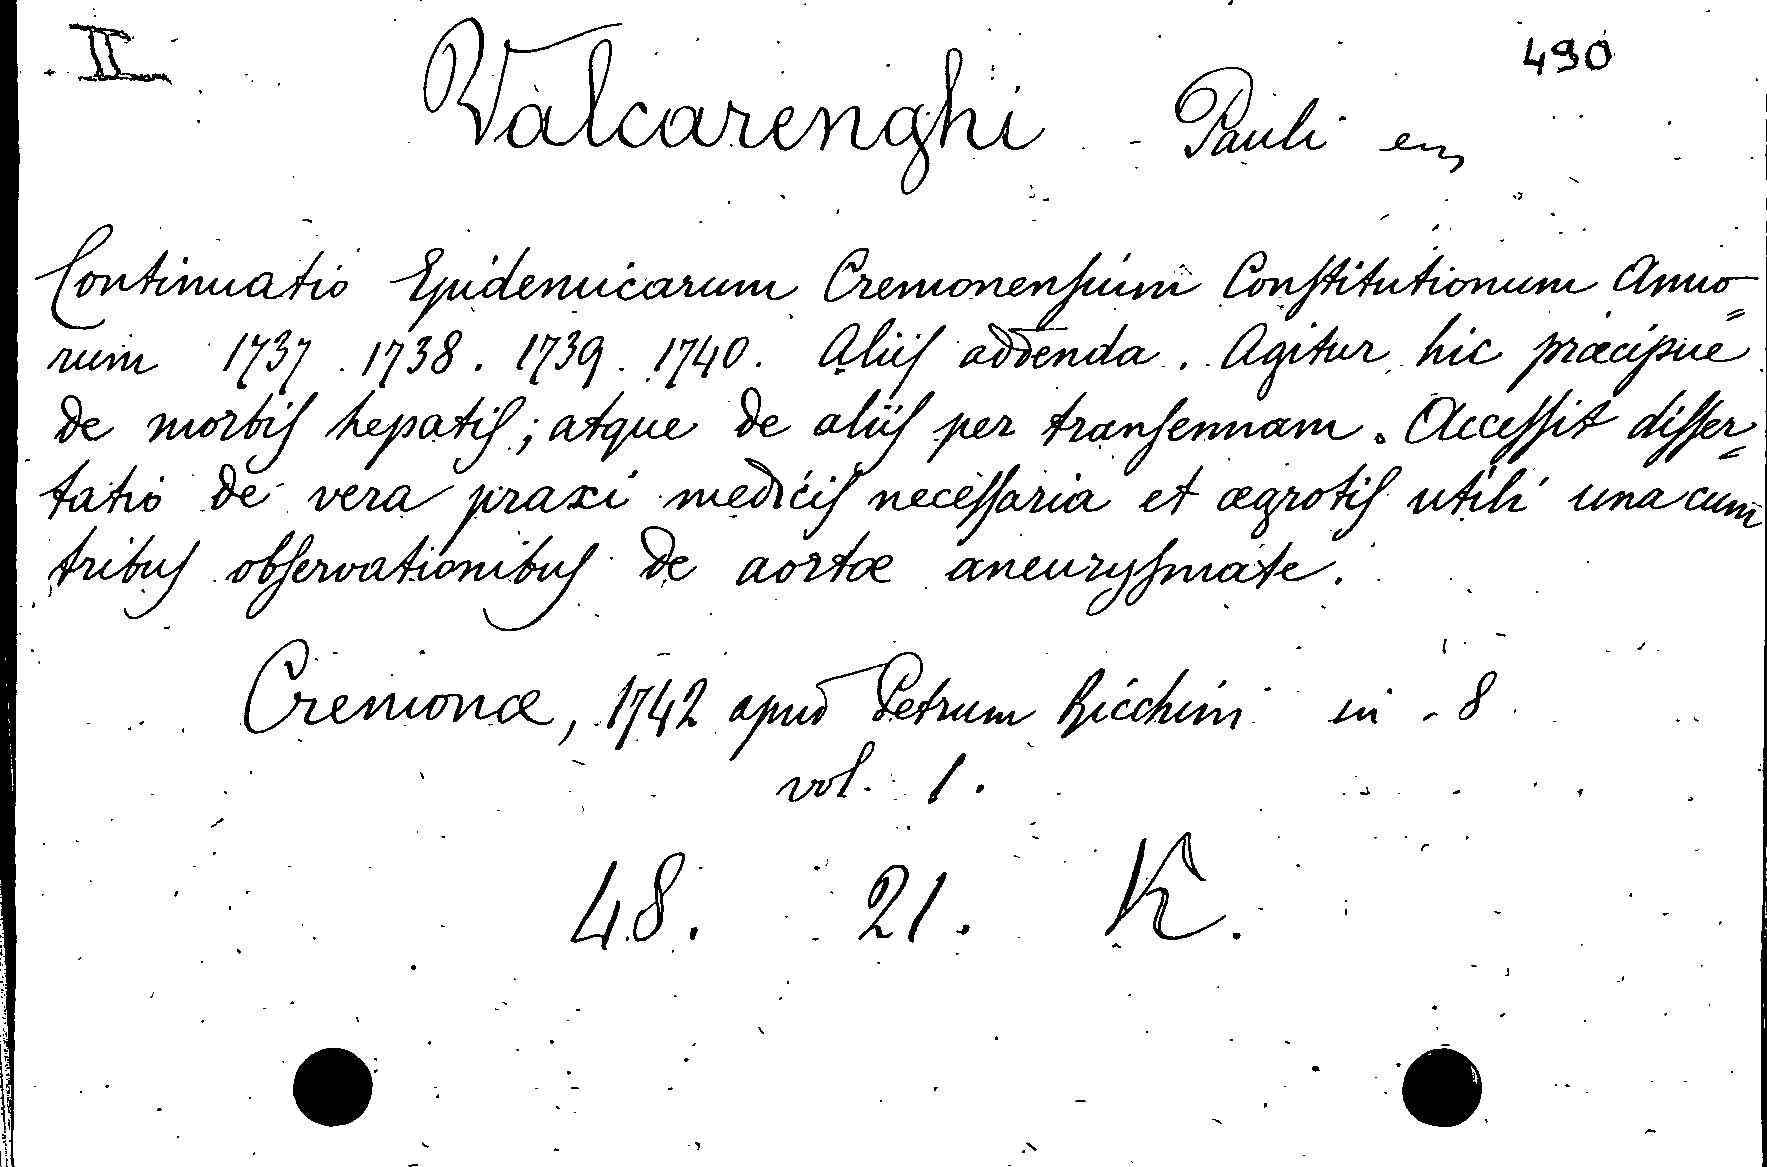 II 490
Valcarenghi Pauli
Continuatio Epidemicarum Cremonensium Constitutionum Anno=
rum 1737 . 1738 . 1739 . 1740 . Aliis addenda . Agitur hic præcipue
de morbis hepatis ; atque de aliis per transennam . Accessit disser=
tatio de vera praxi medicis necessaria et ægrotis utili una cum
tribus observationibus de aortæ aneurysmate .
Cremonæ , 1742 apud Petrum Ricchini in - 8
vol . 1 .
48 . 21 . K .